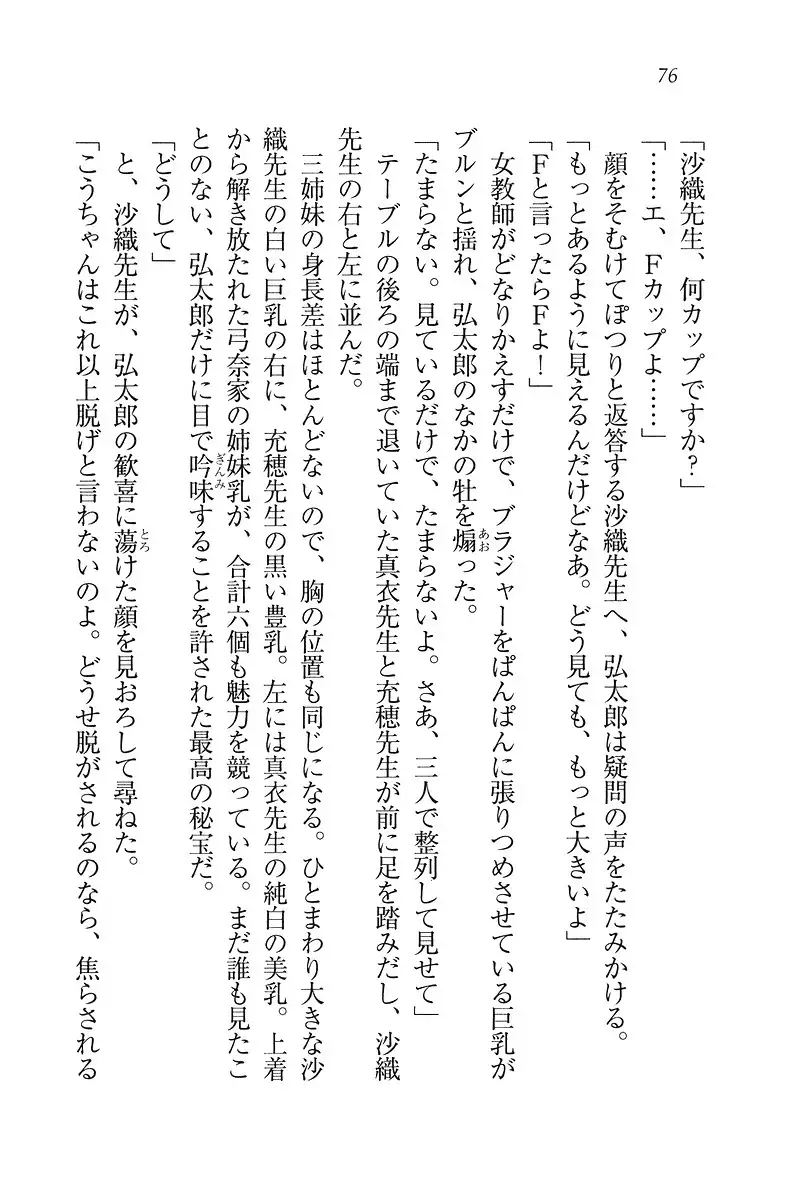 76
「沙織先生、何カップですか？」
「……エ、Ｆカップよ……」
顔をそむけてぽつりと返答する沙織先生へ、弘太郎は疑問の声をたたみかける。
「もっとあるように見えるんだけどなあ。どう見ても、もっと大きいよ」
「Ｆと言ったらＦよ！」
女教師がどなりかえすだけで、ブラジャーをぱんぱんに張りつめさせている巨乳が
ブルンと揺れ、弘太郎のなかの牡を煽った。
あお
「たまらない。見ているだけで、たまらないよ。さあ、三人で整列して見せて」
テーブルの後ろの端まで退いていた真衣先生と充穂先生が前に足を踏みだし、沙織
先生の右と左に並んだ。
三姉妹の身長差はほとんどないので、胸の位置も同じになる。ひとまわり大きな沙
織先生の白い巨乳の右に、充穂先生の黒い豊乳。左には真衣先生の純白の美乳。上着
から解き放たれた弓奈家の姉妹乳が、合計六個も魅力を競っている。まだ誰も見たこ
とのない、弘太郎だけに目で吟味することを許された最高の秘宝だ。
ぎんみ
「どうして」
と、沙織先生が、弘太郎の歓喜に蕩けた顔を見おろして尋ねた。
とろ
「こうちゃんはこれ以上脱げと言わないのよ。どうせ脱がされるのなら、焦らされる